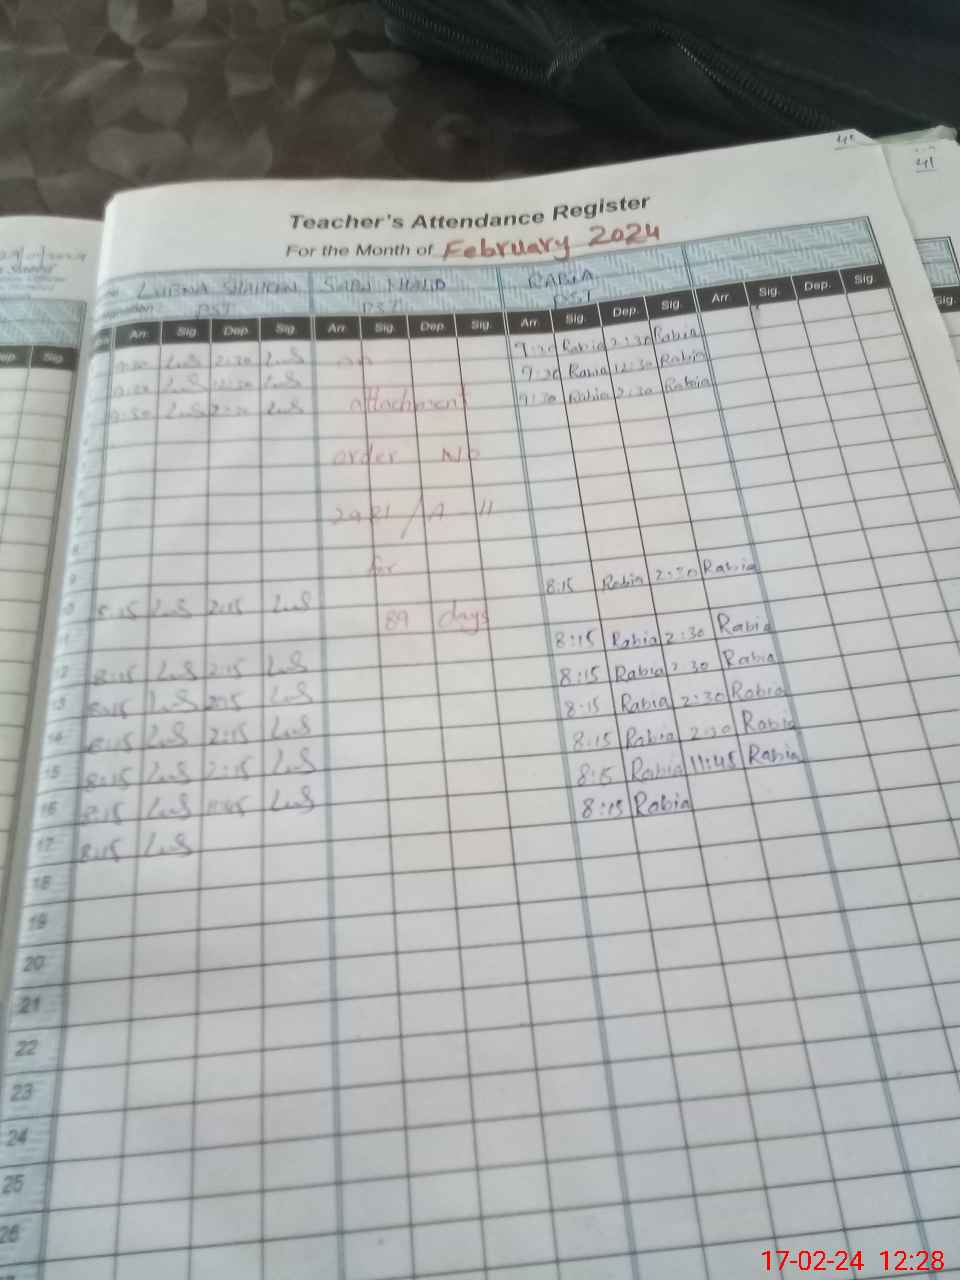 45
41
Teacher's Attendance Register
For the Month of February 2024
LUBNA SHAHEEN SABA KHALID RABIA
PST PST PST
Arr. Sig. Dep. Sig. Arr. Sig. Dep. Sig. Arr. Sig. Dep. Sig. Arr. Sig. Dep. Sig.
9:30 LuS 2:30 LuS 9:30 Rabia 2:30 Rabia
LuS 12:30 LuS 9:30 Rabia 12:30 Rabia
9:30 LuS 2:30 LuS Attachment 9:30 Rabia 2:30 Rabia
order No
2
for
9 8:15 Rabia 2:30 Rabia
8:15 LuS 2:15 LuS 89 days
8:15 Rabia 2:30 Rabia
12 8:15 LuS 2:15 LuS 8:15 Rabia 2:30 Rabia
13 8:15 LuS 2:15 LuS 8:15 Rabia 2:30 Rabia
14 8:15 LuS 2:15 LuS 8:15 Rabia 2:30 Rabia
15 8:15 LuS 2:15 LuS 8:15 Rabia 11:45 Rabia
16 8:15 LuS 11:45 LuS 8:15 Rabia
17 8:15 LuS
18
19
20
21
22
23
24
25
26
17-02-24 12:28